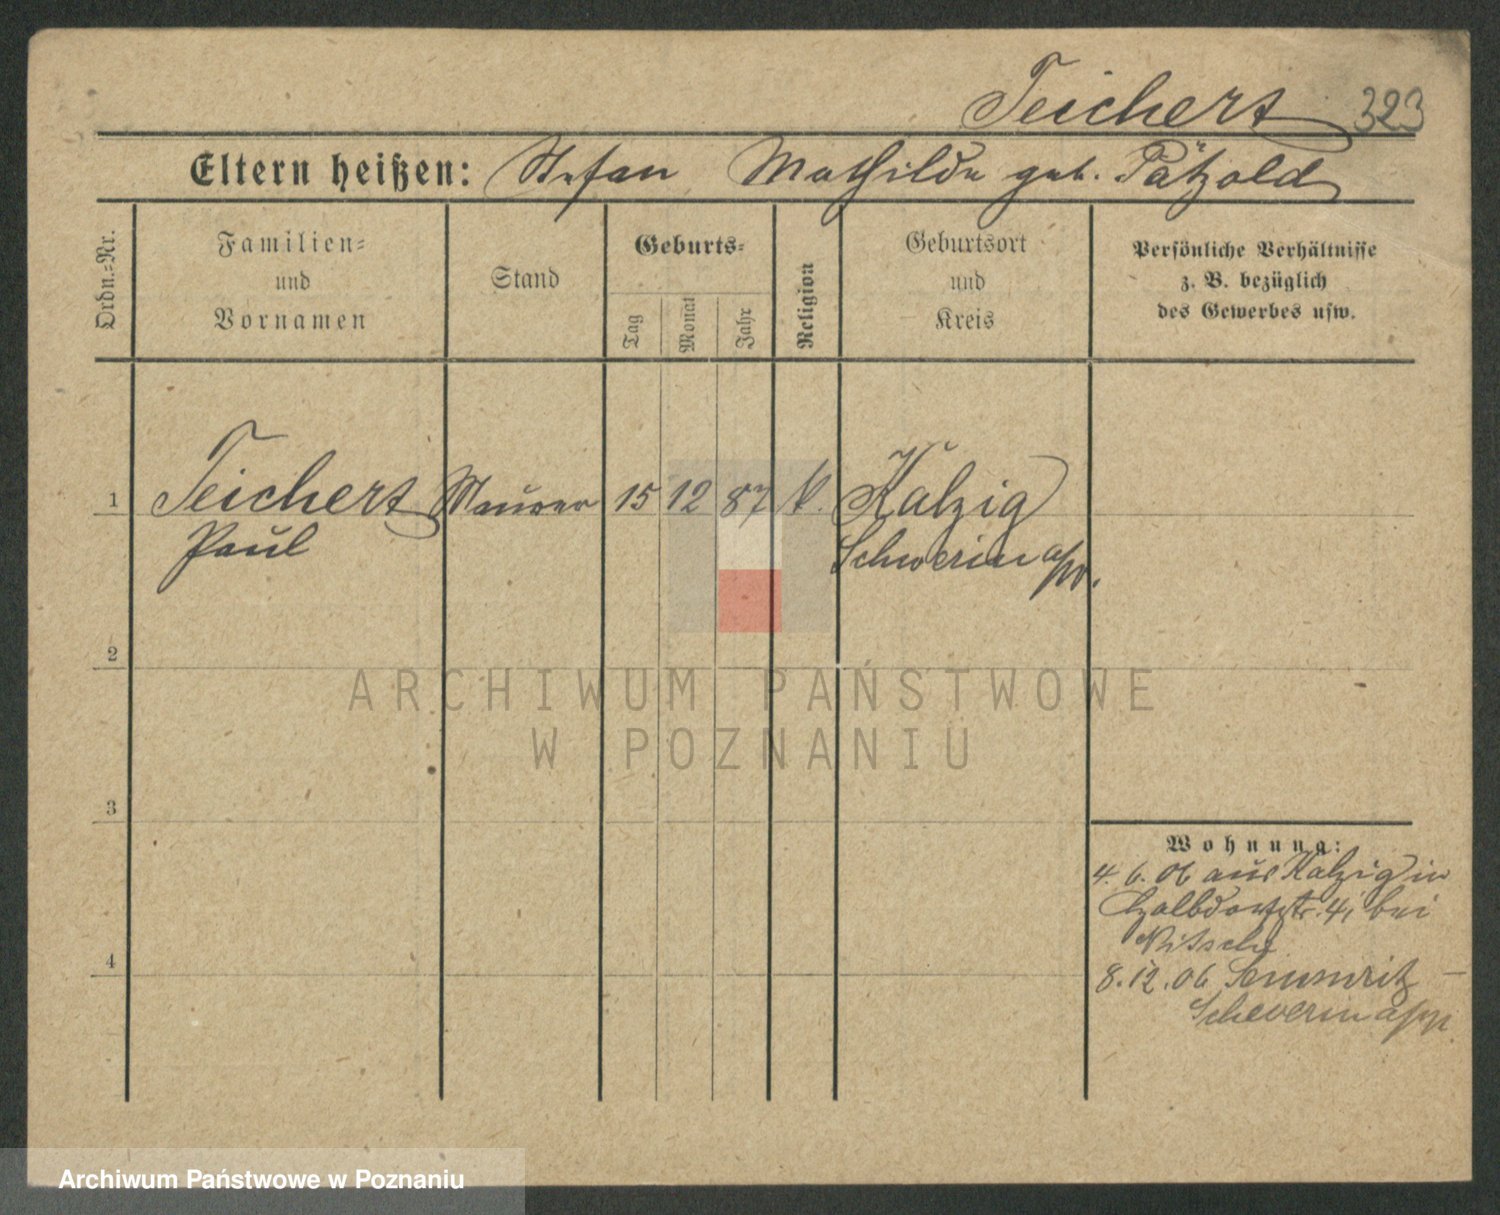 Teichert 323
Eltern heißen: Stefan Mathilde geb. Pätzold
Ordn.=Nr.
Familien=
und
Vornamen
Stand
Geburts=
Tag
Monat
Jahr
Religion
Geburtsort
und
Kreis
Persönliche Verhältnisse
z. B. bezüglich
des Gewerbes usw.
1 Teichert Maurer 15 12 87 k. Kalzig
Paul Schwerin a/W.
2
ARCHIWUM PAŃSTWOWE
W POZNANIU
3
Wohnung:
4. 6. 06 aus Kalzig in
4 bei
Nitsche
4
8. 12. 06 Semmritz –
Schwerin a/W
Archiwum Państwowe w Poznaniu